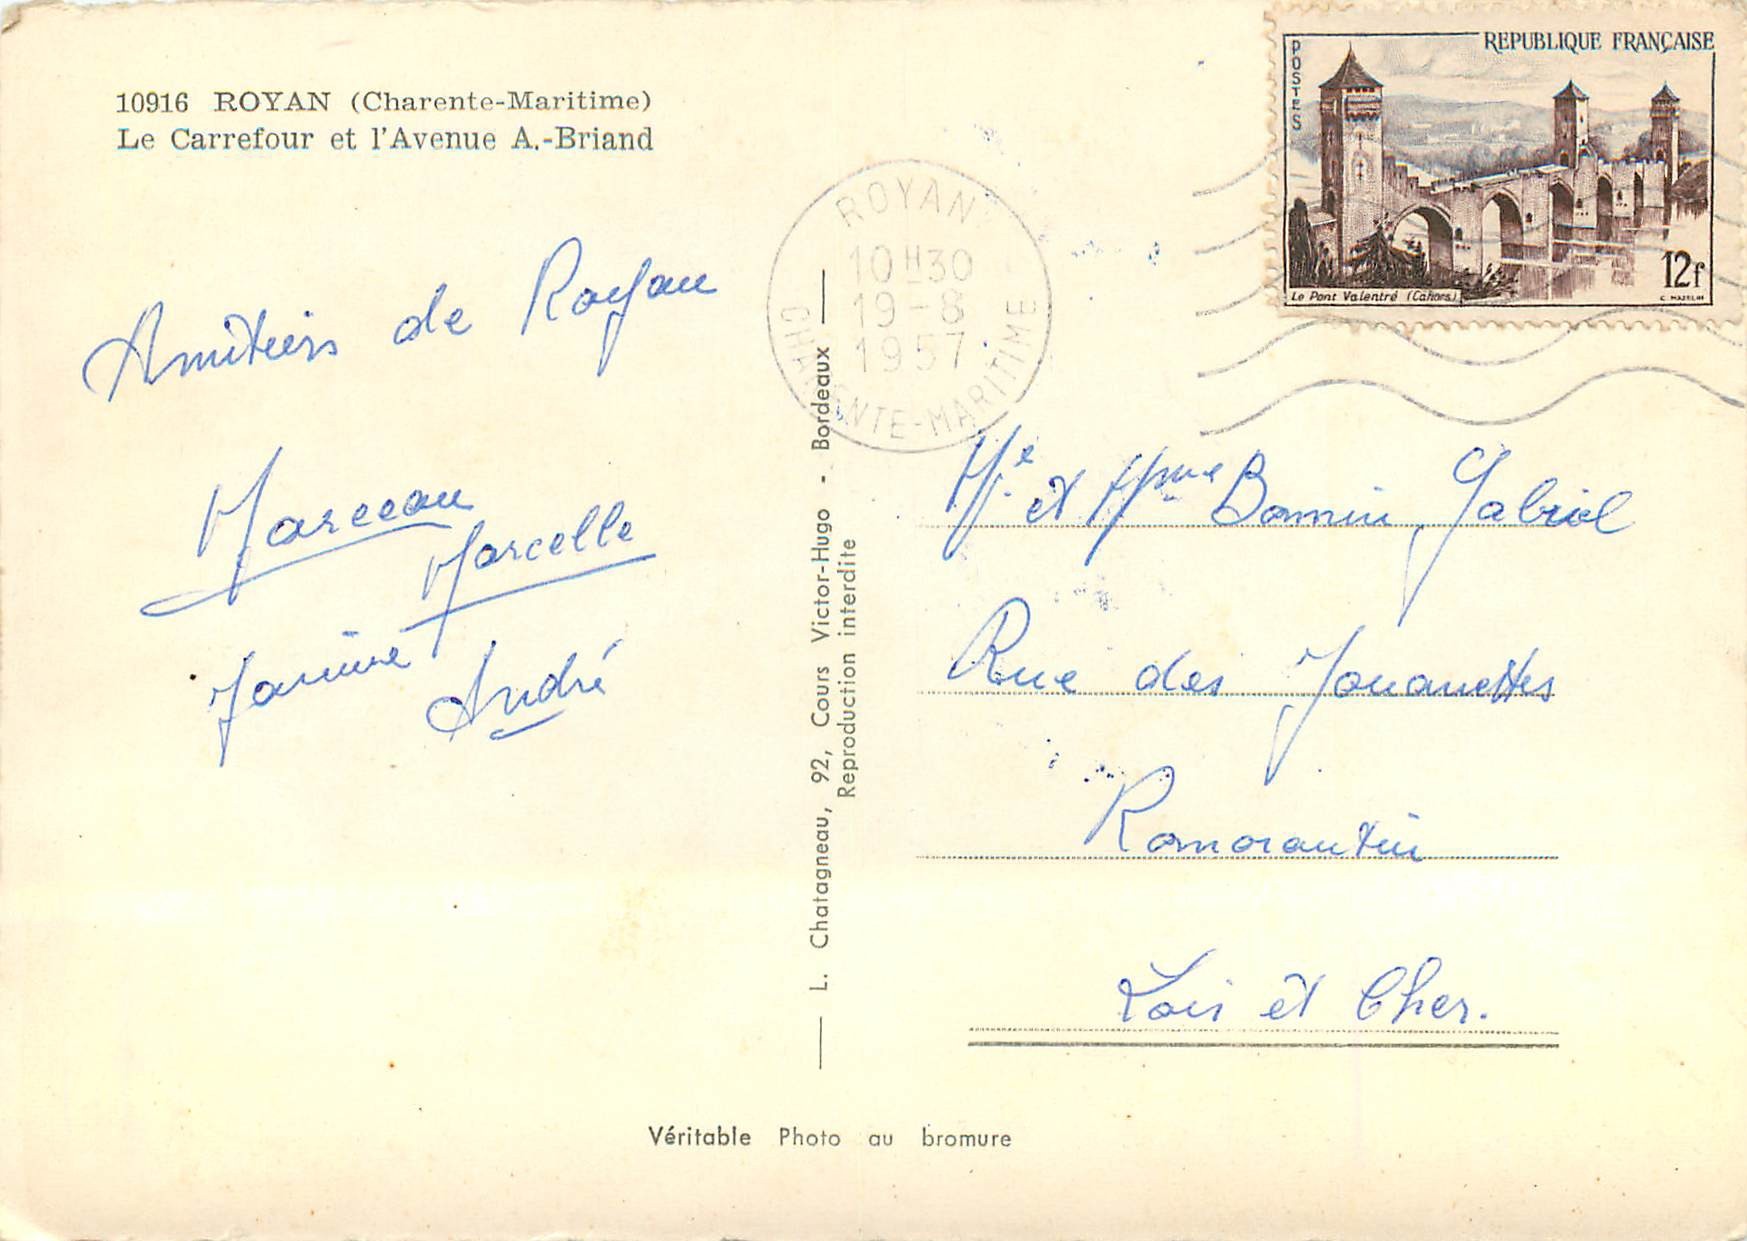 10916 ROYAN (Charente-Maritime)
Le Carrefour et l'Avenue A.-Briand
Amitiers de Royan
Marceau
Marcelle
Janine
André
L. Chatagneau, 92, Cours Victor-Hugo - Bordeaux
Reproduction interdite
Véritable Photo au bromure
ROYAN
10H30
19-8
1957
CHARENTE-MARITIME
POSTES
REPUBLIQUE FRANÇAISE
12f
Le Pont Valentré (Cahors)
C. MAZELIN
Mr et Mme Bonnin Gabriel
Rue des Jouanettes
Romorantin
Loir et Cher.